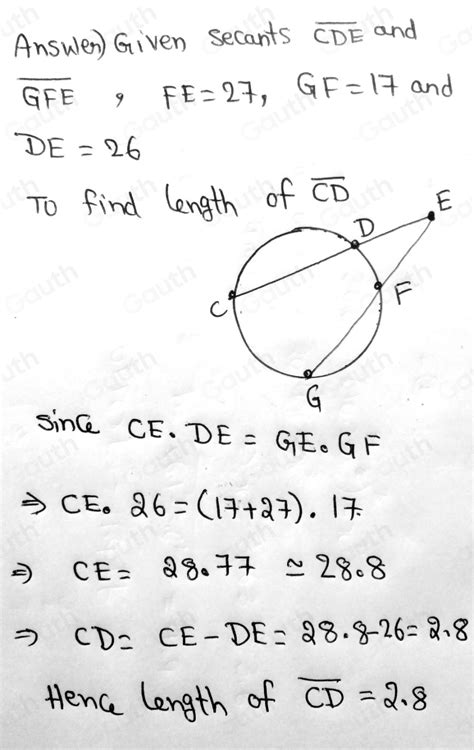 Answer) Given secants CDE and
GFE , FE=27, GF=17 and
DE = 26
To find length of CD
E
D
F
C
G
Since CE. DE = GE. GF
⇒ CE. 26=(17+27). 17.
⇒ CE= 28.77 ≃ 28.8
⇒ CD= CE-DE= 28.8-26= 2.8
Hence length of CD = 2.8
Gauth